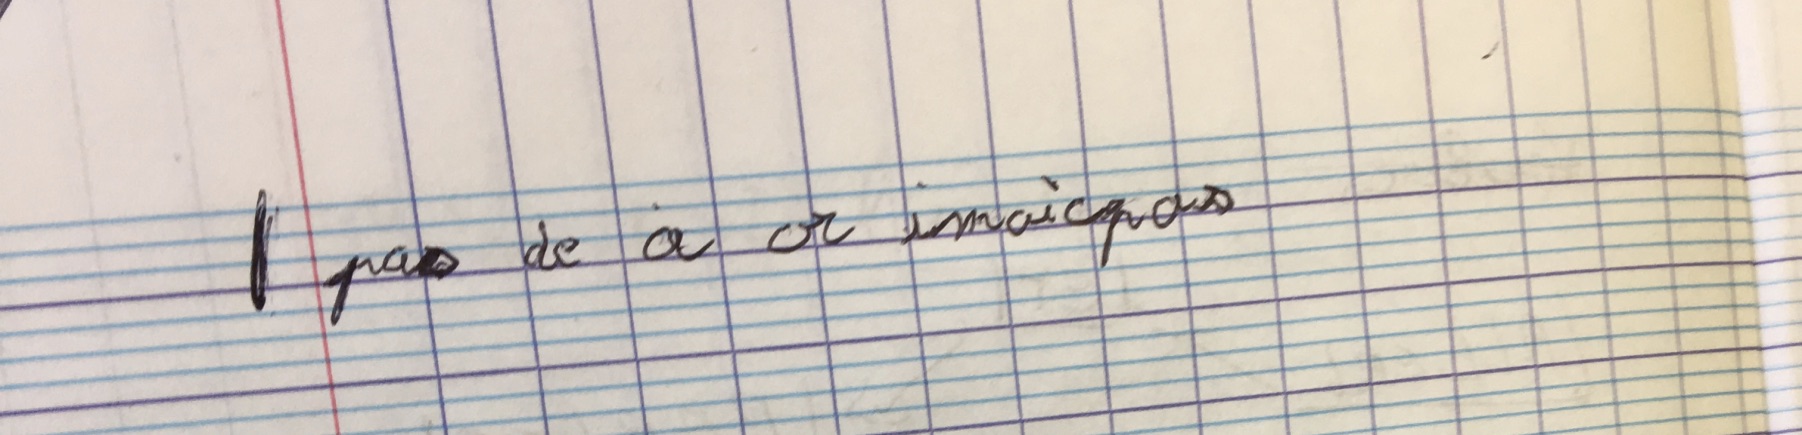 pas de à or imaicpas